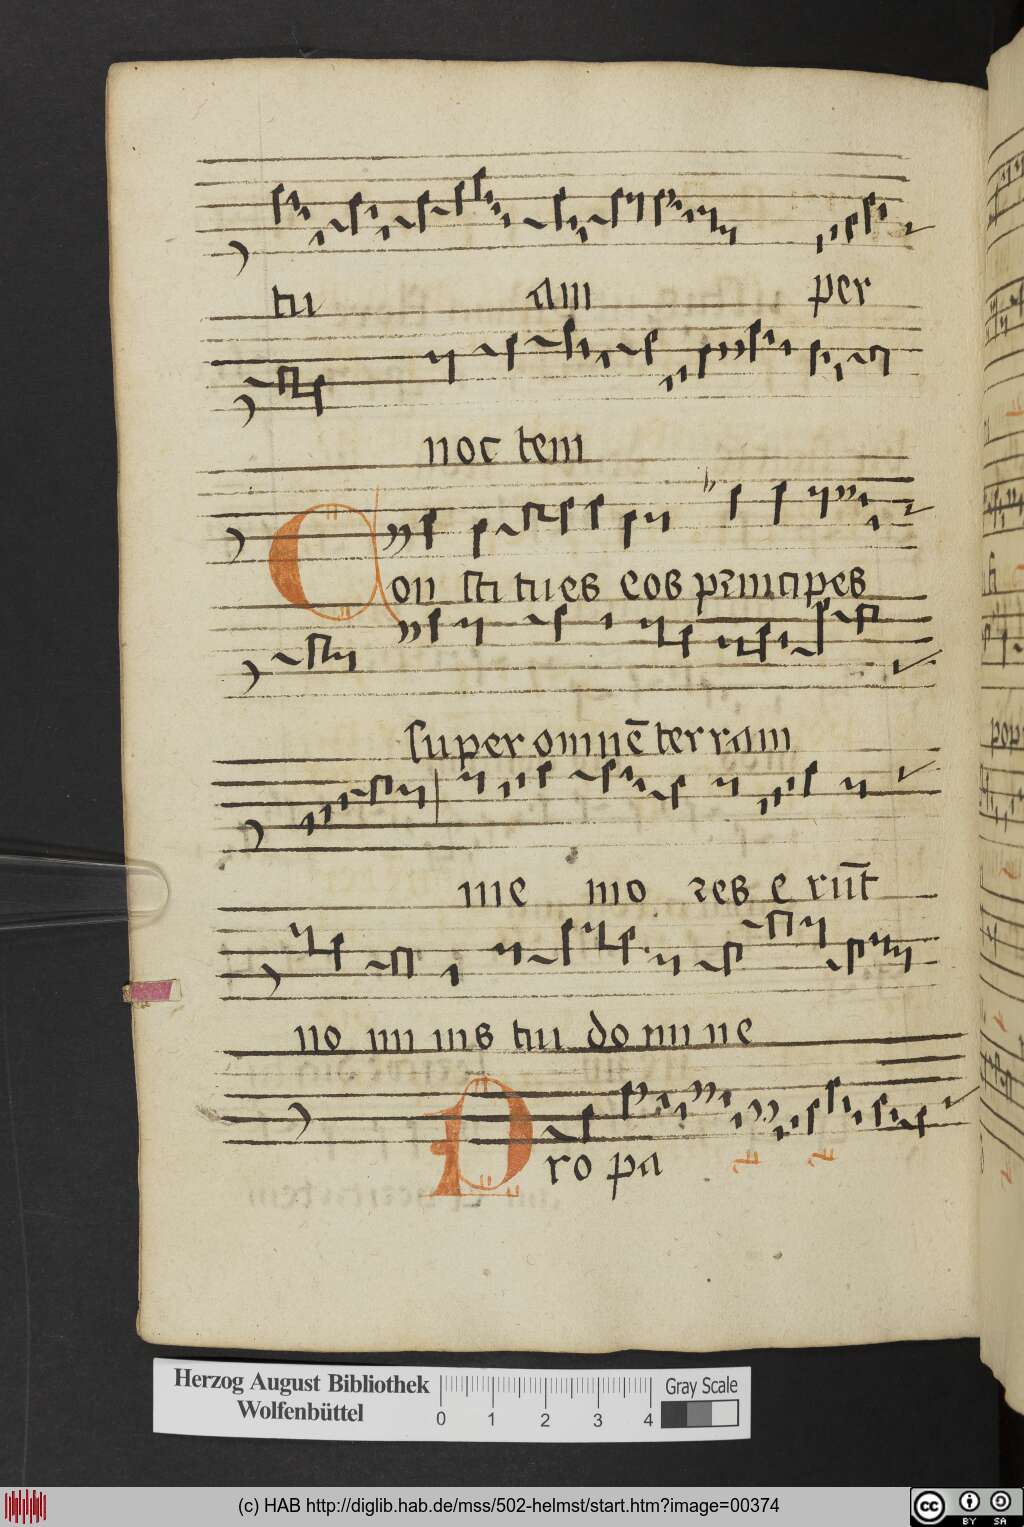 tu am per
noc tem
Con sti tues eos principes
super omnē terram
me mo res e rūt
no mi nis tui do mi ne
Pro pa
Herzog August Bibliothek
Wolfenbüttel
0 1 2 3 4
Gray Scale
(c) HAB http://diglib.hab.de/mss/502-helmst/start.htm?image=00374
cc BY SA